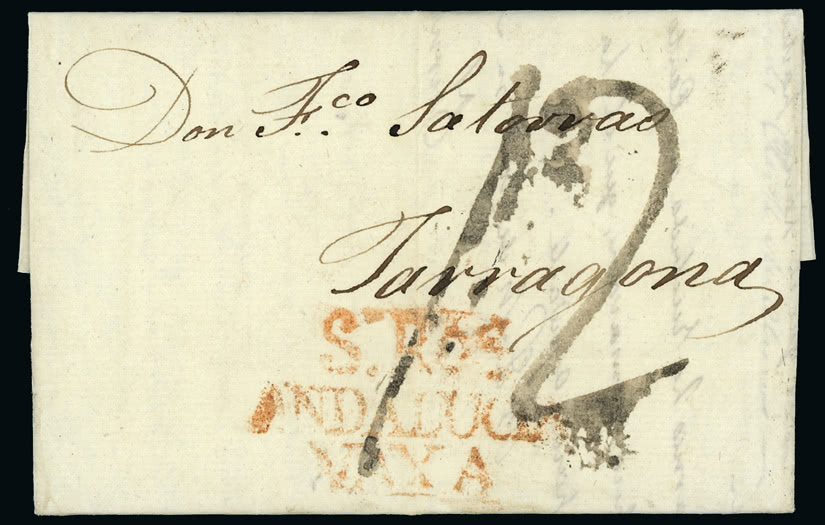 Don F.co Satorras
Tarragona
12
S. R.
ANDALUCIA
VAXA